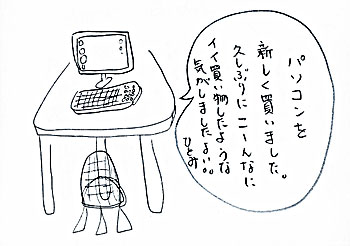 パソコンを
新しく買いました。
久しぶりにこーんなに
イイ買い物したような
気がしましたよい。。
ひとみ